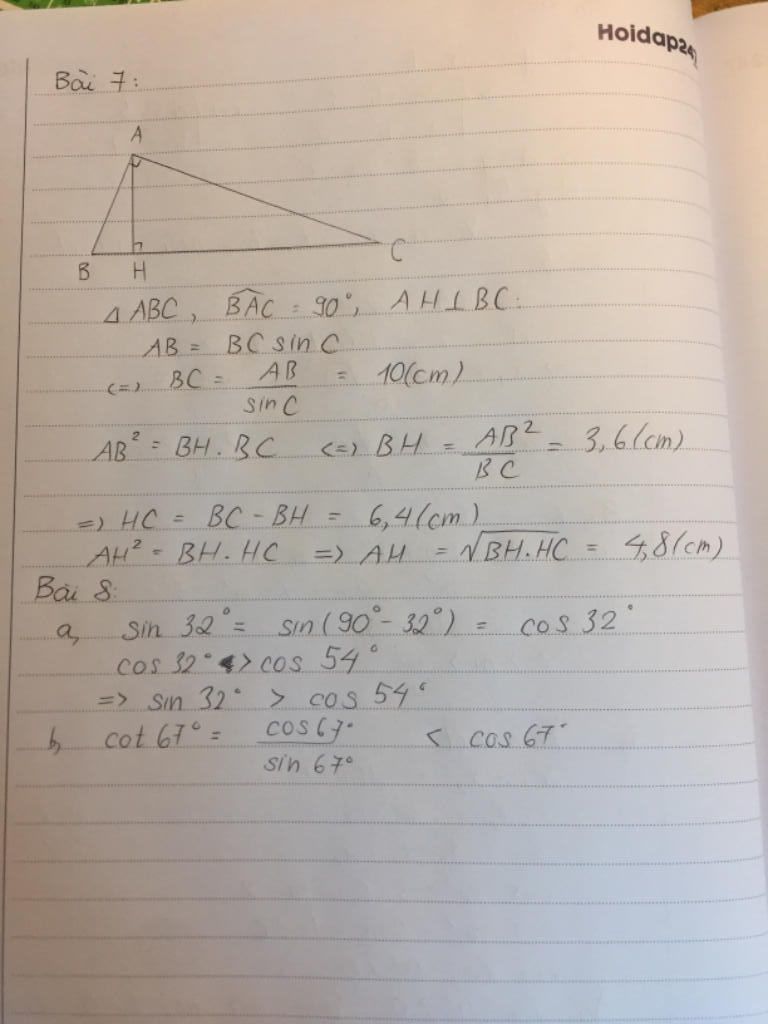 Hoidap247
Bài 7:
A
B H C
△ ABC, \widehat{BAC} = 90°, AH ⊥ BC.
AB = BC sin C
<=> BC = AB / sin C = 10(cm)
AB² = BH. BC <=> BH = AB² / BC = 3,6(cm)
=> HC = BC - BH = 6,4(cm)
AH² = BH. HC => AH = √BH.HC = 4,8(cm)
Bài 8:
a, sin 32° = sin(90° - 32°) = cos 32°
cos 32° > cos 54°
=> sin 32° > cos 54°
b, cot 67° = cos 67° / sin 67° < cos 67°